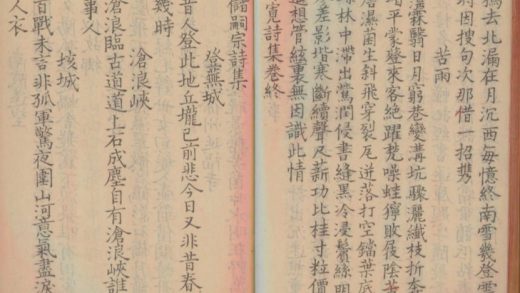 攜去北漏在月沉西每憶終南雪幾登雲
時因搜句次那惜一招攜
苦雨
霖翳日月窮巷變溝坑驟灑纖枝折奔
均平蒙登來客絕躍梵噪蛙獰敗屐陰苔
磨濕菌生斜飛穿裂瓦迸落打空鐺葉底
緣林中滯出鶯潤侵書縫黑冷浸鬢絲明
差影揩寒斷續聲尺薪功比桂寸粒價
想管絃裏無因識此情
寬詩集卷終
儲嗣宗詩集
登蕪城
昔人登此地丘壠已前悲今日又非昔春
幾時
滄浪峽
滄浪臨古道道上石成塵自有滄浪峽誰
事人
垓城
百戰未言非孤軍驚夜圍山河意氣盡淚
人衣